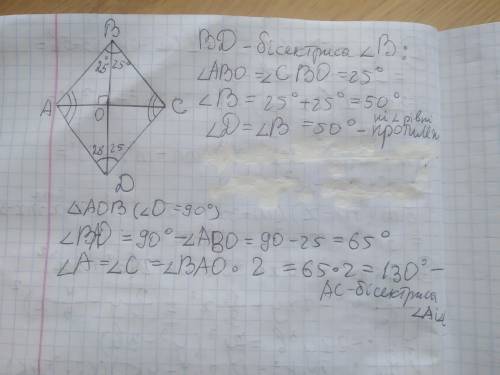 B
25° 25°
A
O
C
25 25
D
BD - бісектриса ∠B:
∠ABO = ∠CBO = 25°
∠B = 25° + 25° = 50°
∠D = ∠B = 50° - ці ∠ рівні
протилеж
△AOB (∠O = 90°)
∠BAO = 90° - ∠ABO = 90 - 25 = 65°
∠A = ∠C = ∠BAO · 2 = 65 · 2 = 130° -
AC - бісектриса